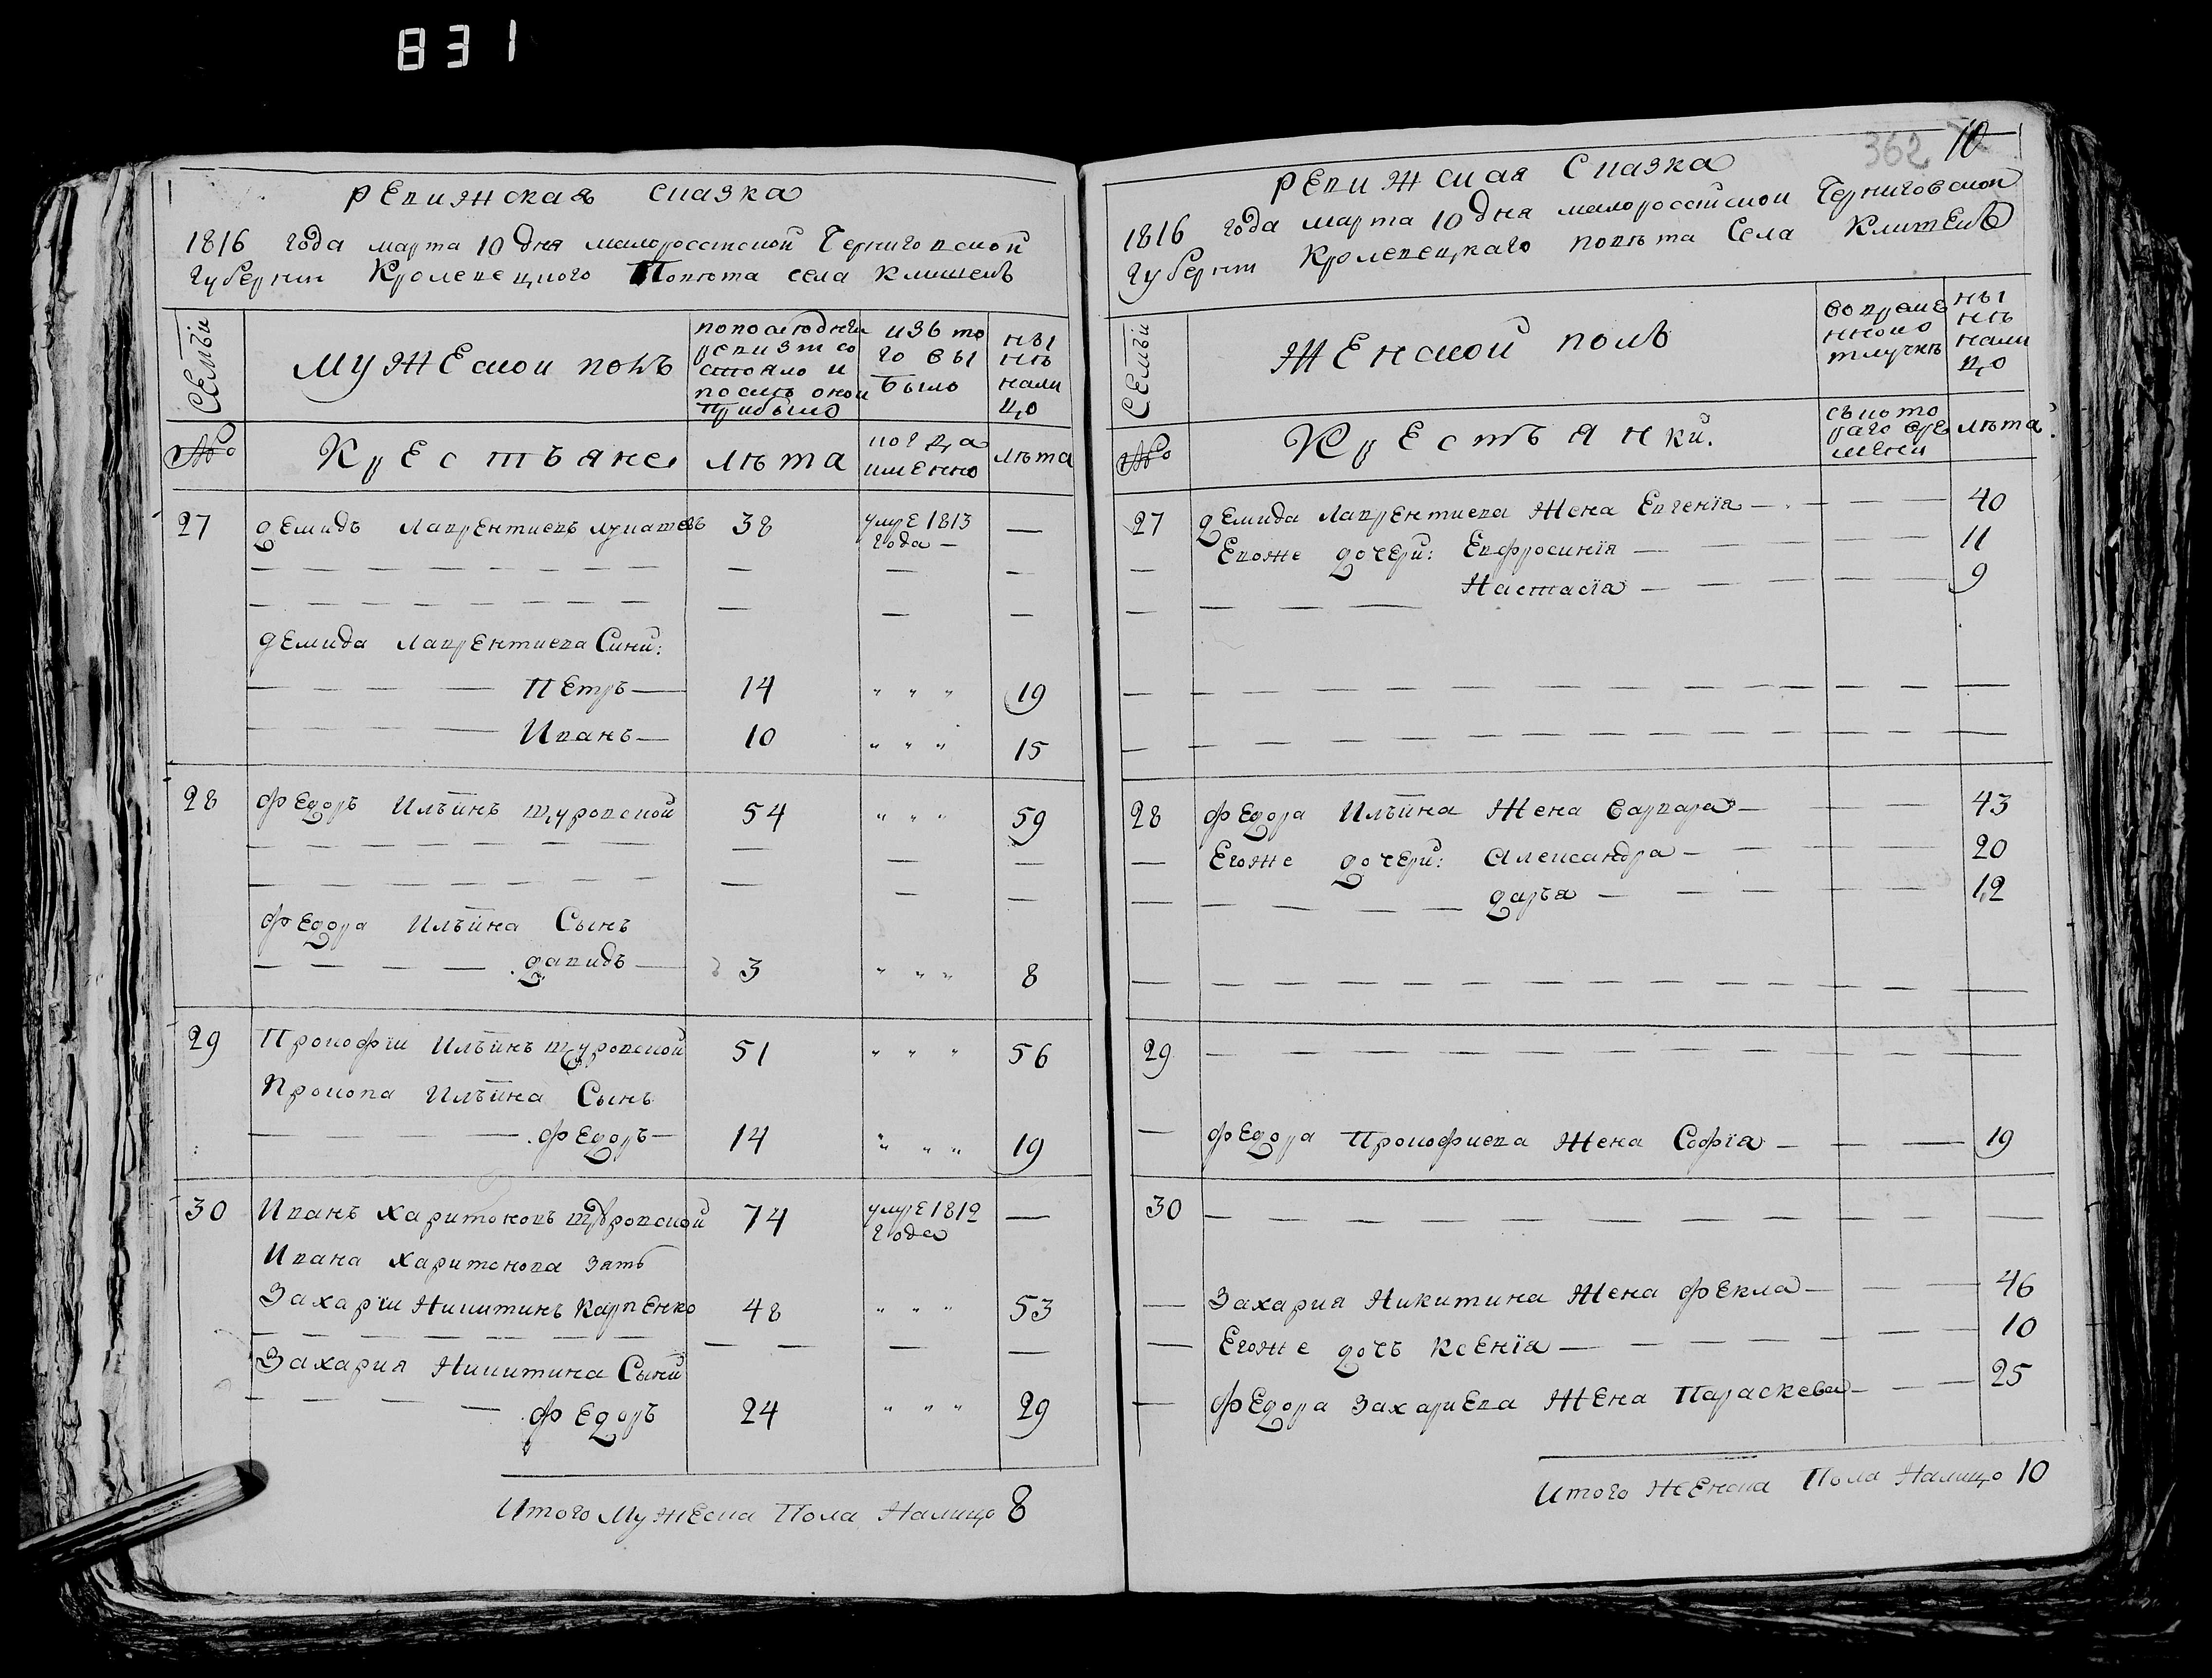 831
Ревижская сказка
1816 года марта 10 дня малороссийской Черниговской
губернии Кролевецкого Повѣта села Клишекъ
Семьи
Мужеской полъ
по последней
ревизіи со
стояло и
послѣ оной
прибыло
изъ то
го вы
было
ны
нѣ
нали
цо
№о
Крестъяне
лѣта
когда
именно
лѣта
27 Демидъ Лаврентиевъ 38 умре 1813 —
года —
Демида Лаврентиева Сини:
Петръ — 14 " " " 19
Иванъ — 10 " " " 15
28 Федоръ Ильинъ щуровской 54 " " " 59
Федора Ильина Сынъ
Давидъ — 3 " " " 8
29 Прокофїи Ильинъ щуровской 51 " " " 56
Прокопа Ильина Сынъ
Федоръ — 14 " " " 19
30 Иванъ Харитоновъ щуровской 74 умре 1812 —
года
Ивана Харитонова зять
Захарїи Никитинъ Карпенко 48 " " " 53
Захария Никитина Сыни
Федоръ 24 " " " 29
Итого Мужеска Пола Налицо 8
362 10
Ревижская Сказка
1816 года марта 10 дня малороссійской Черниговской
губерніи Кролевецкаго повѣта Села
Семьи
Женской полъ
во време
нной о
тлучкѣ
ны
нѣ
нали
цо
№о
Крестъянки.
съ кото
раго вре
мени
лѣта
27 Демида Лаврентиева Жена Евгенїя — 40
Евоже дочери: Евфросинїя — 11
Настасїя — 9
28 Федора Ильина Жена Варвара — 43
Егоже дочери: Александра — 20
Даръя — 12
29
Федора Прокофиева Жена Софїя — 19
30
Захария Никитина Жена Фекла — 46
Егоже дочъ Ксенїя — 10
Федора Захариева Жена Параскева — 25
Итого Женска Пола Налицо 10